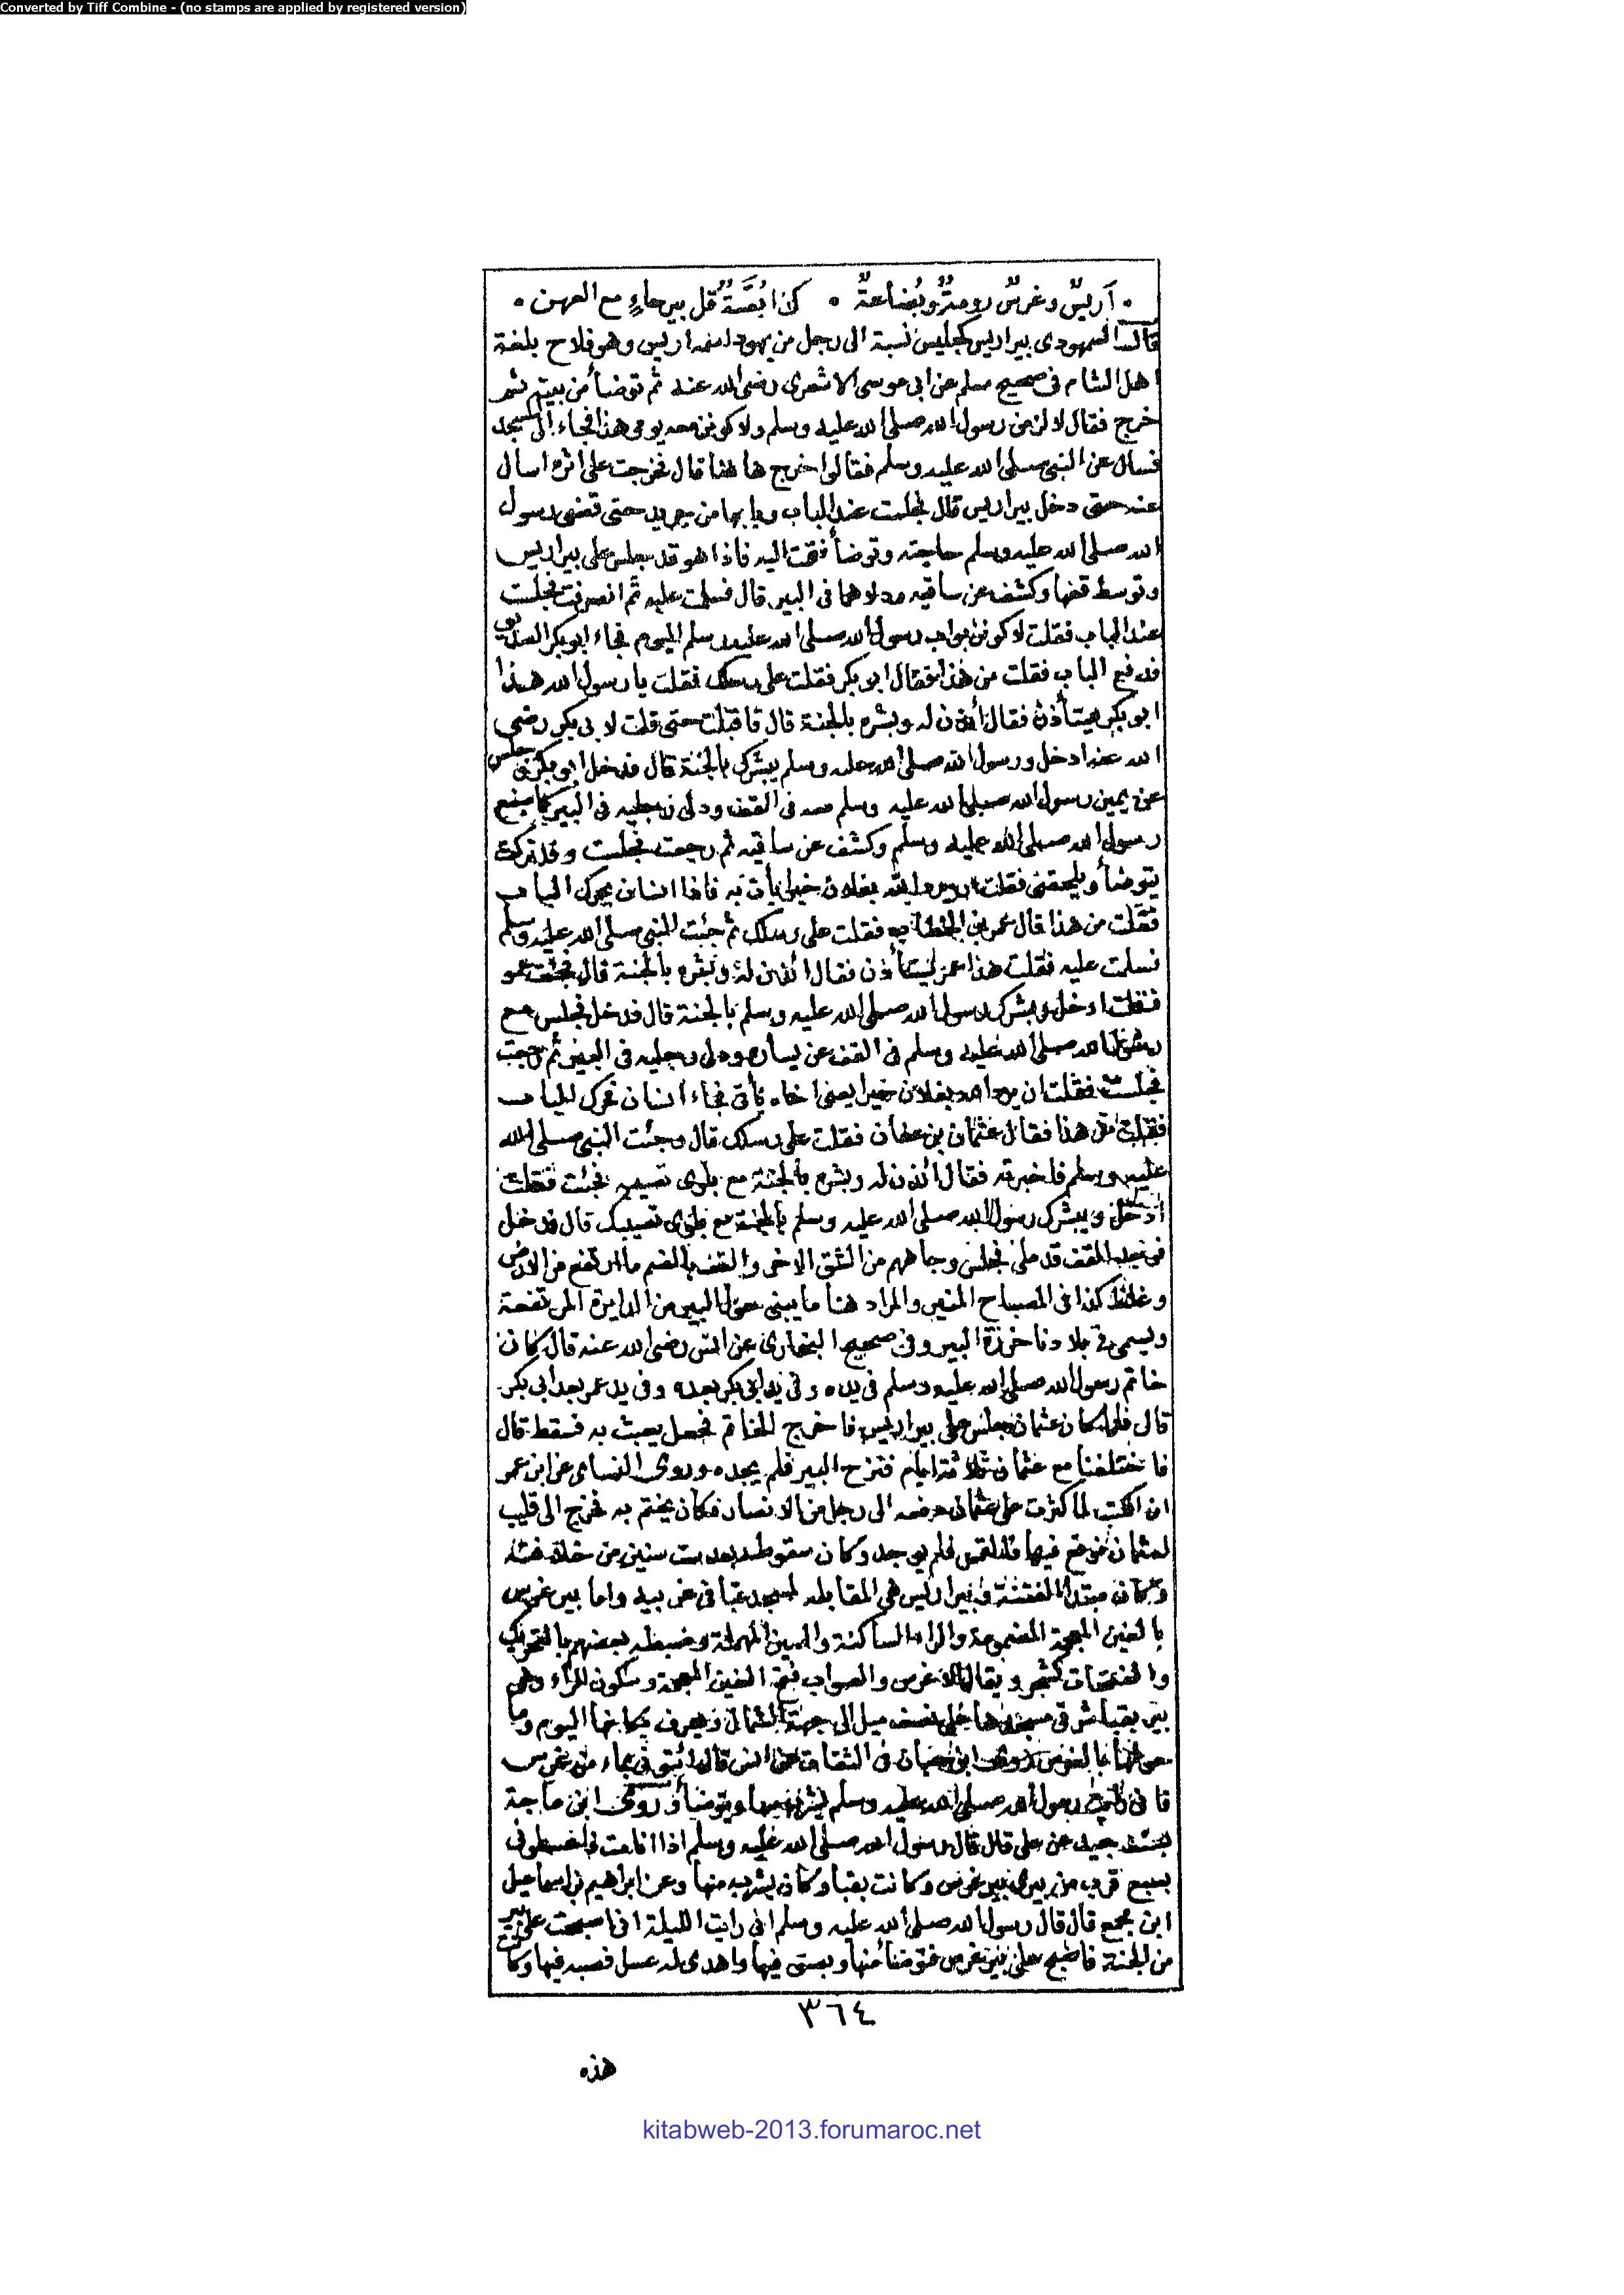 Converted by Tiff Combine - (no stamps are applied by registered version)
• آريسٌ وغرسٌ رومةٌ وبُضاعةٌ • كذا بُصَّةٌ قل بير حاءٍ مع العهن •
قال السمهودى بير اريس كجليس نسبة الى رجل من يهود اسمه اريس وهو فلاح بلغة
اهل الشام فى صحيح مسلم عن ابى موسى الاشعرى رضى الله عنه ثم توضأ من بيته ثم
خرج فقال لالزمن رسول الله صلى الله عليه وسلم ولاكونن معه يومى هذا فجاء الى المسجد
فسال عن النبى صلى الله عليه وسلم فقالوا خرج هاهنا قال فخرجت على اثره اسال
عنه حتى دخل بير اريس قال فجلست عند الباب وبابها من جريد حتى قضى رسول
الله صلى الله عليه وسلم حاجته وتوضأ فقمت اليه فاذا هو قد جلس على بير اريس
وتوسط قفها وكشف عن ساقيه ودلاهما فى البير قال فسلمت عليه ثم انصرفت فجلست
عند الباب فقلت لاكونن بواب رسول الله صلى الله عليه وسلم اليوم فجاء ابو بكر الصديق
فدفع الباب فقلت من هذا فقال ابو بكر فقلت على رسلك فقلت يا رسول الله هذا
ابو بكر يستأذن فقال أئذن له وبشره بالجنة قال فاقبلت حتى قلت لابى بكر رضى
الله عنه ادخل ورسول الله صلى الله عليه وسلم يبشرك بالجنة قال فدخل ابو بكر فجلس
عن يمين رسول الله صلى الله عليه وسلم معه فى القف ودلى رجليه فى البير كما صنع
رسول الله صلى الله عليه وسلم وكشف عن ساقيه ثم رجعت فجلست وقد تركت
يتوضأ ويلحقنى فقلت ان يرد الله بفلان خيرا يأت به فاذا انسان يحرك الباب
فقلت من هذا قال عمر بن الخطاب فقلت على رسلك ثم جئت للنبى صلى الله عليه وسلم
فسلمت عليه فقلت هذا عمر يستأذن فقال ائذن له وبشره بالجنة قال فجئت عمر
فقلت ادخل وبشرك رسول الله صلى الله عليه وسلم بالجنة قال فدخل فجلس مع
رسول الله صلى الله عليه وسلم فى القف عن يساره ودلى رجليه فى البير ثم رجعت
فجلست فقلت ان يرد الله بفلان خيرا يعنى اخاه يأتى فجاء انسان فحرك الباب
فقلت من هذا فقال عثمان بن عفان فقلت على رسلك قال وجئت النبى صلى الله
عليه وسلم فاخبرته فقال ائذن له وبشره بالجنة مع بلوى تصيبه فجئت فقلت
ادخل ويبشرك رسول الله صلى الله عليه وسلم بالجنة مع بلوى تصيبك قال فدخل
فوجد القف قد ملئ فجلس وجاههم من الشق الاخر والقف بالضم ما ارتفع من الارض
وغلظ كذا فى المصباح المنير والمراد هنا ما يبنى حول البير من الدايرة المرتفعة
ويسمى فى بلادنا خرزة البير وفى صحيح البخارى عن انس رضى الله عنه قال كان
خاتم رسول الله صلى الله عليه وسلم فى يده وفى يد ابى بكر بعده وفى يد عمر بعد ابى بكر
قال فلما كان عثمان جلس على بير اريس فاخرج الخاتم فجعل يعبث به فسقط قال
فاختلفنا مع عثمان ثلاثة ايام فنزح البير فلم يجده وروى النساى عن ابن عمر
ان الكتب لما كثرت على عثمان دفعه الى رجل من الانصار فكان يختم به فخرج الى قليب
لعثمان فوقع فيها فالتمس فلم يوجد وكان سقوطه بعد ست سنين من خلافته
وكان مبتدا الفتنة وبير اريس هى المقابله لمسجد قبا فى غربيه واما بير غرس
بالغين المعجمة المضمومة والراء الساكنة والسين المهملة وضبطه بعضهم بالتحريك
والفتحات كشجر ويقال الاغرس والصواب فتح الغين المعجمة وسكون الراء وهى
بير بقبا شرقى مسجدها على نصف ميل الى جهة الشمال ويعرف مكانها اليوم وما
حولها بالغرس روى ابن حبان فى الثقات عن انس قال ائتونى بماء من غرس
فانى رايت رسول الله صلى الله عليه وسلم يشرب منها ويتوضأ وروى ابن ماجة
بسند جيد عن على قال قال رسول الله صلى الله عليه وسلم اذا انا مت فاغسلونى
بسبع قرب من بيرى بير غرس وكانت بقبا وكان يشرب منها وعن ابراهيم بن اسماعيل
ابن مجمع قال قال رسول الله صلى الله عليه وسلم انى رايت الليلة انى اصبحت على بير
من الجنة فاصبح على بير غرس فتوضأ منها وبصق فيها واهدى له عسل فصبه فيها وكانت
٣٦٤
هذه
kitabweb-2013.forumaroc.net